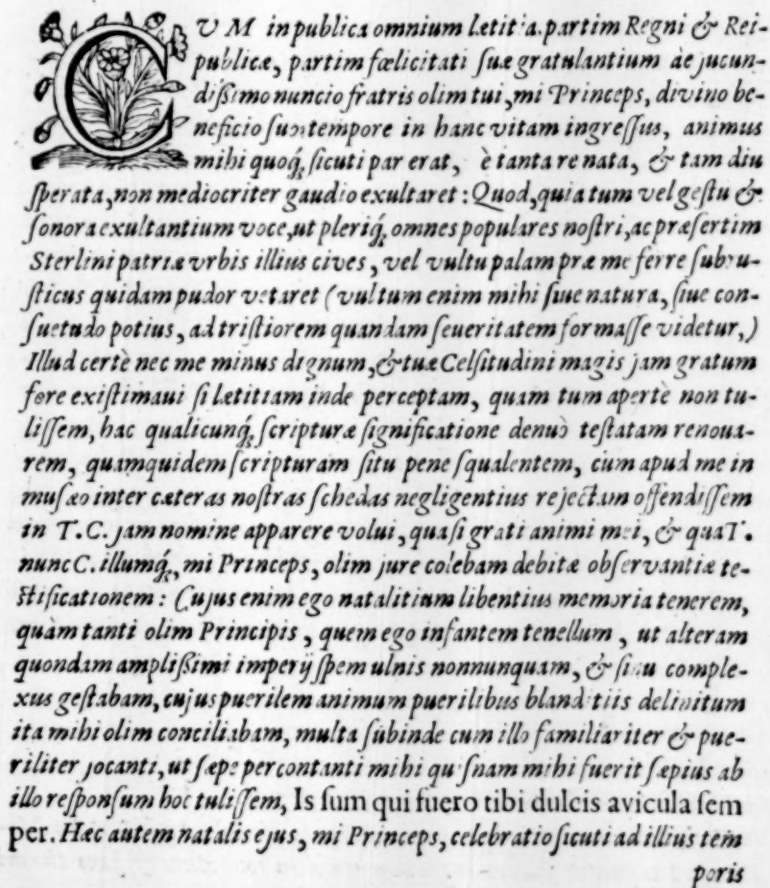 CVM in publica omnium lætitia. partim Regni & Rei-
publicæ, partim fœlicitati suæ gratulantium de jucun-
dißimo nuncio fratris olim tui, mi Princeps, divino be-
neficio suo tempore in hanc vitam ingressus, animus
mihi quoq́; sicuti par erat, è tanta re nata, & tam diu
sperata, non mediocriter gaudio exultaret: Quod, quia tum vel gestu &
sonora exultantium voce, ut pleriq́; omnes populares nostri, ac præsertim
Sterlini patriæ vrbis illius cives, vel vultu palam præ me ferre subru-
sticus quidam pudor vetaret (vultum enim mihi siue natura, siue con-
suetudo potius, ad tristiorem quandam seueritatem formasse videtur,)
Illud certè nec me minus dignum, & tuæ Celsitudini magis jam gratum
fore existimaui si lætitiam inde perceptam, quam tum apertè non tu-
lissem, hac qualicunq́; scripturæ significatione denuò testatam renoua-
rem, quamquidem scripturam situ pene squalentem, cum apud me in
musæo inter cæteras nostras schedas negligentius rejectam offendissem
in T.C. jam nomine apparere volui, quasi grati animi mei, & qua T.
nunc C. illumq́;, mi Princeps, olim jure colebam debitæ observantiæ te-
stificationem: Cujus enim ego natalitium libentius memoria tenerem,
quàm tanti olim Principis, quem ego infantem tenellum, ut alteram
quondam amplißimi imperij spem ulnis nonnunquam, & sinu comple-
xus gestabam, cujus puerilem animum puerilibus blanditiis delinitum
ita mihi olim conciliabam, multa subinde cum illo familiariter & pue-
riliter jocanti, ut sæpe percontanti mihi quisnam mihi fuerit sæpius ab
illo responsum hoc tulissem, Is sum qui fuero tibi dulcis avicula sem
per. Hæc autem natalis ejus, mi Princeps, celebratio sicuti ad illius tem
poris